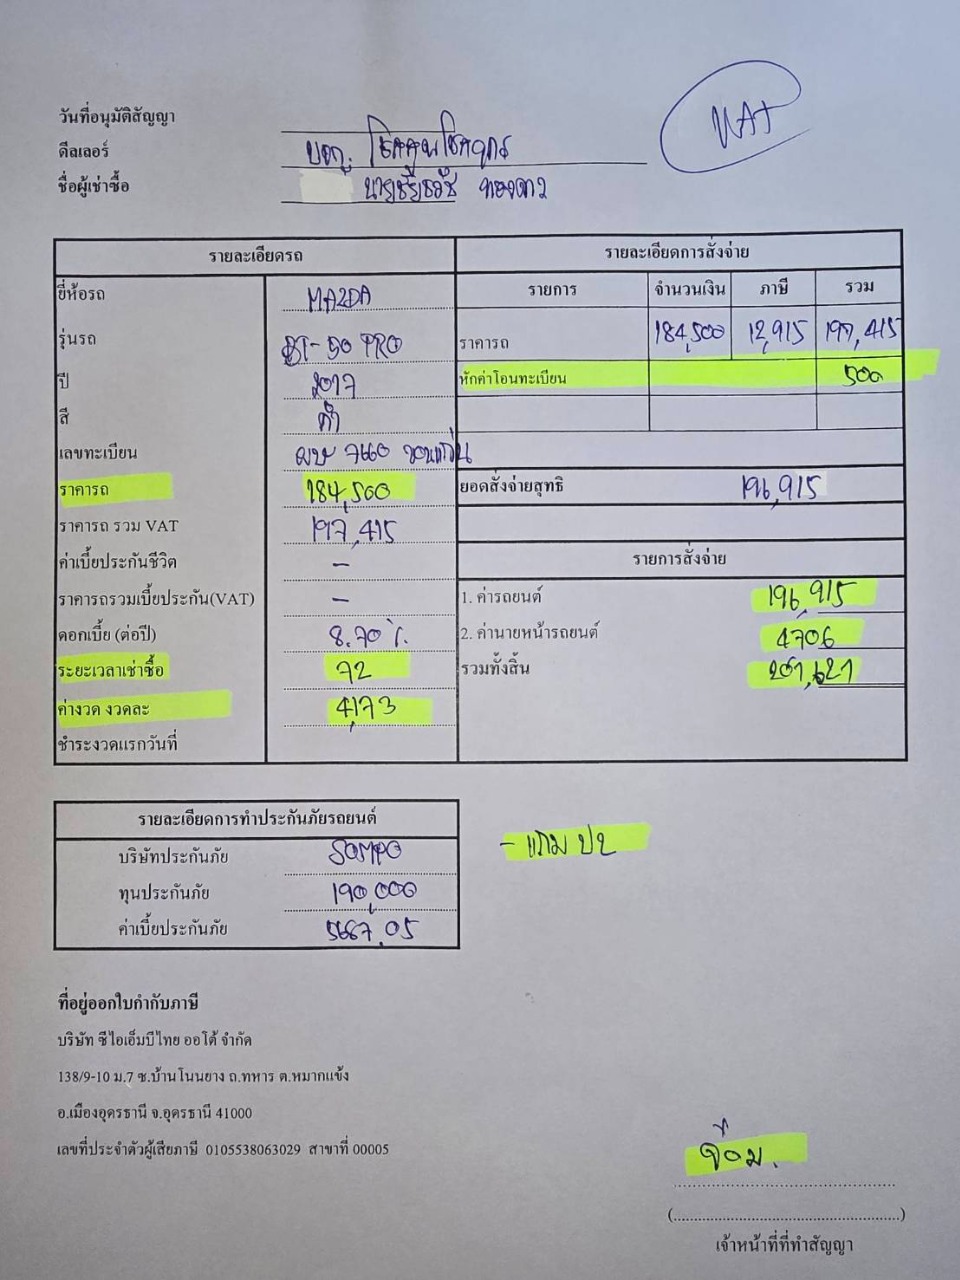 VAT
วันที่อนุมัติสัญญา
ดีลเลอร์ บจก. โชคคูนโชคอุดร
ชื่อผู้เช่าซื้อ นายชัยธวัช ทองดาว
รายละเอียดรถ
ยี่ห้อรถ MAZDA
รุ่นรถ BT-50 PRO
ปี 2017
สี ดำ
เลขทะเบียน ผษ 7660 ขอนแก่น
ราคารถ 184,500
ราคารถ รวม VAT 197,415
ค่าเบี้ยประกันชีวิต -
ราคารถรวมเบี้ยประกัน(VAT) -
ดอกเบี้ย (ต่อปี) 8.70 %
ระยะเวลาเช่าซื้อ 72
ค่างวด งวดละ 4,173
ชำระงวดแรกวันที่
รายละเอียดการสั่งจ่าย
รายการ จำนวนเงิน ภาษี รวม
ราคารถ 184,500 12,915 197,415
หักค่าโอนทะเบียน 500
ยอดสั่งจ่ายสุทธิ 196,915
รายการสั่งจ่าย
1. ค่ารถยนต์ 196,915
2. ค่านายหน้ารถยนต์ 4706
รวมทั้งสิ้น 201,621
รายละเอียดการทำประกันภัยรถยนต์
บริษัทประกันภัย SOMPO
ทุนประกันภัย 190,000
ค่าเบี้ยประกันภัย 5667.05
- แถม ป2
ที่อยู่ออกใบกำกับภาษี
บริษัท ซีไอเอ็มบีไทย ออโต้ จำกัด
138/9-10 ม.7 ซ.บ้านโนนยาง ถ.ทหาร ต.หมากแข้ง
อ.เมืองอุดรธานี จ.อุดรธานี 41000
เลขที่ประจำตัวผู้เสียภาษี 0105538063029 สาขาที่ 00005
จ๋อม.
(............................................)
เจ้าหน้าที่ที่ทำสัญญา